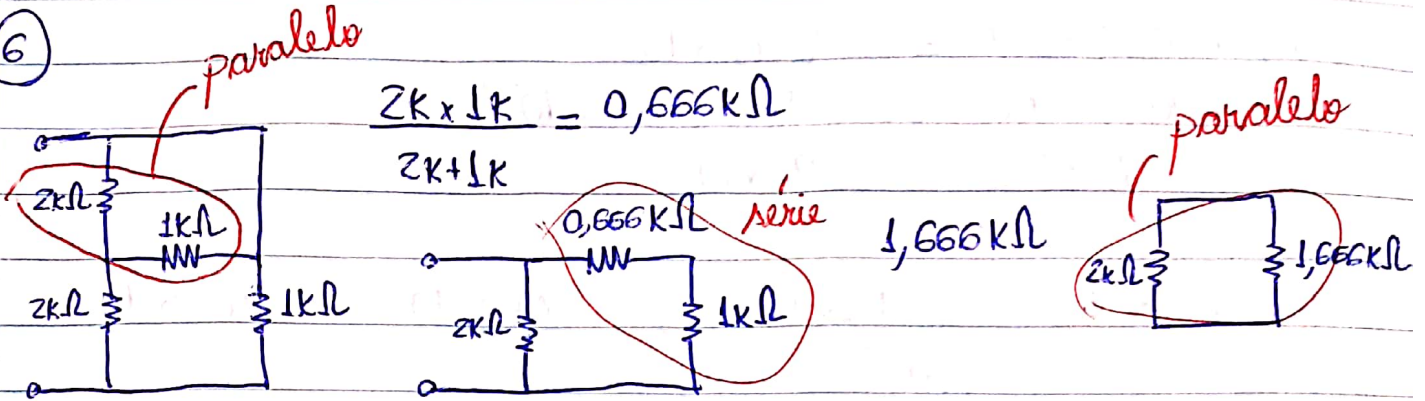 6
paralelo
2K x 1K = 0,666KΩ
2K+1K
2KΩ
1KΩ
2KΩ
1KΩ
0,666KΩ
série
2KΩ
1KΩ
1,666KΩ
paralelo
2KΩ
1,666KΩ